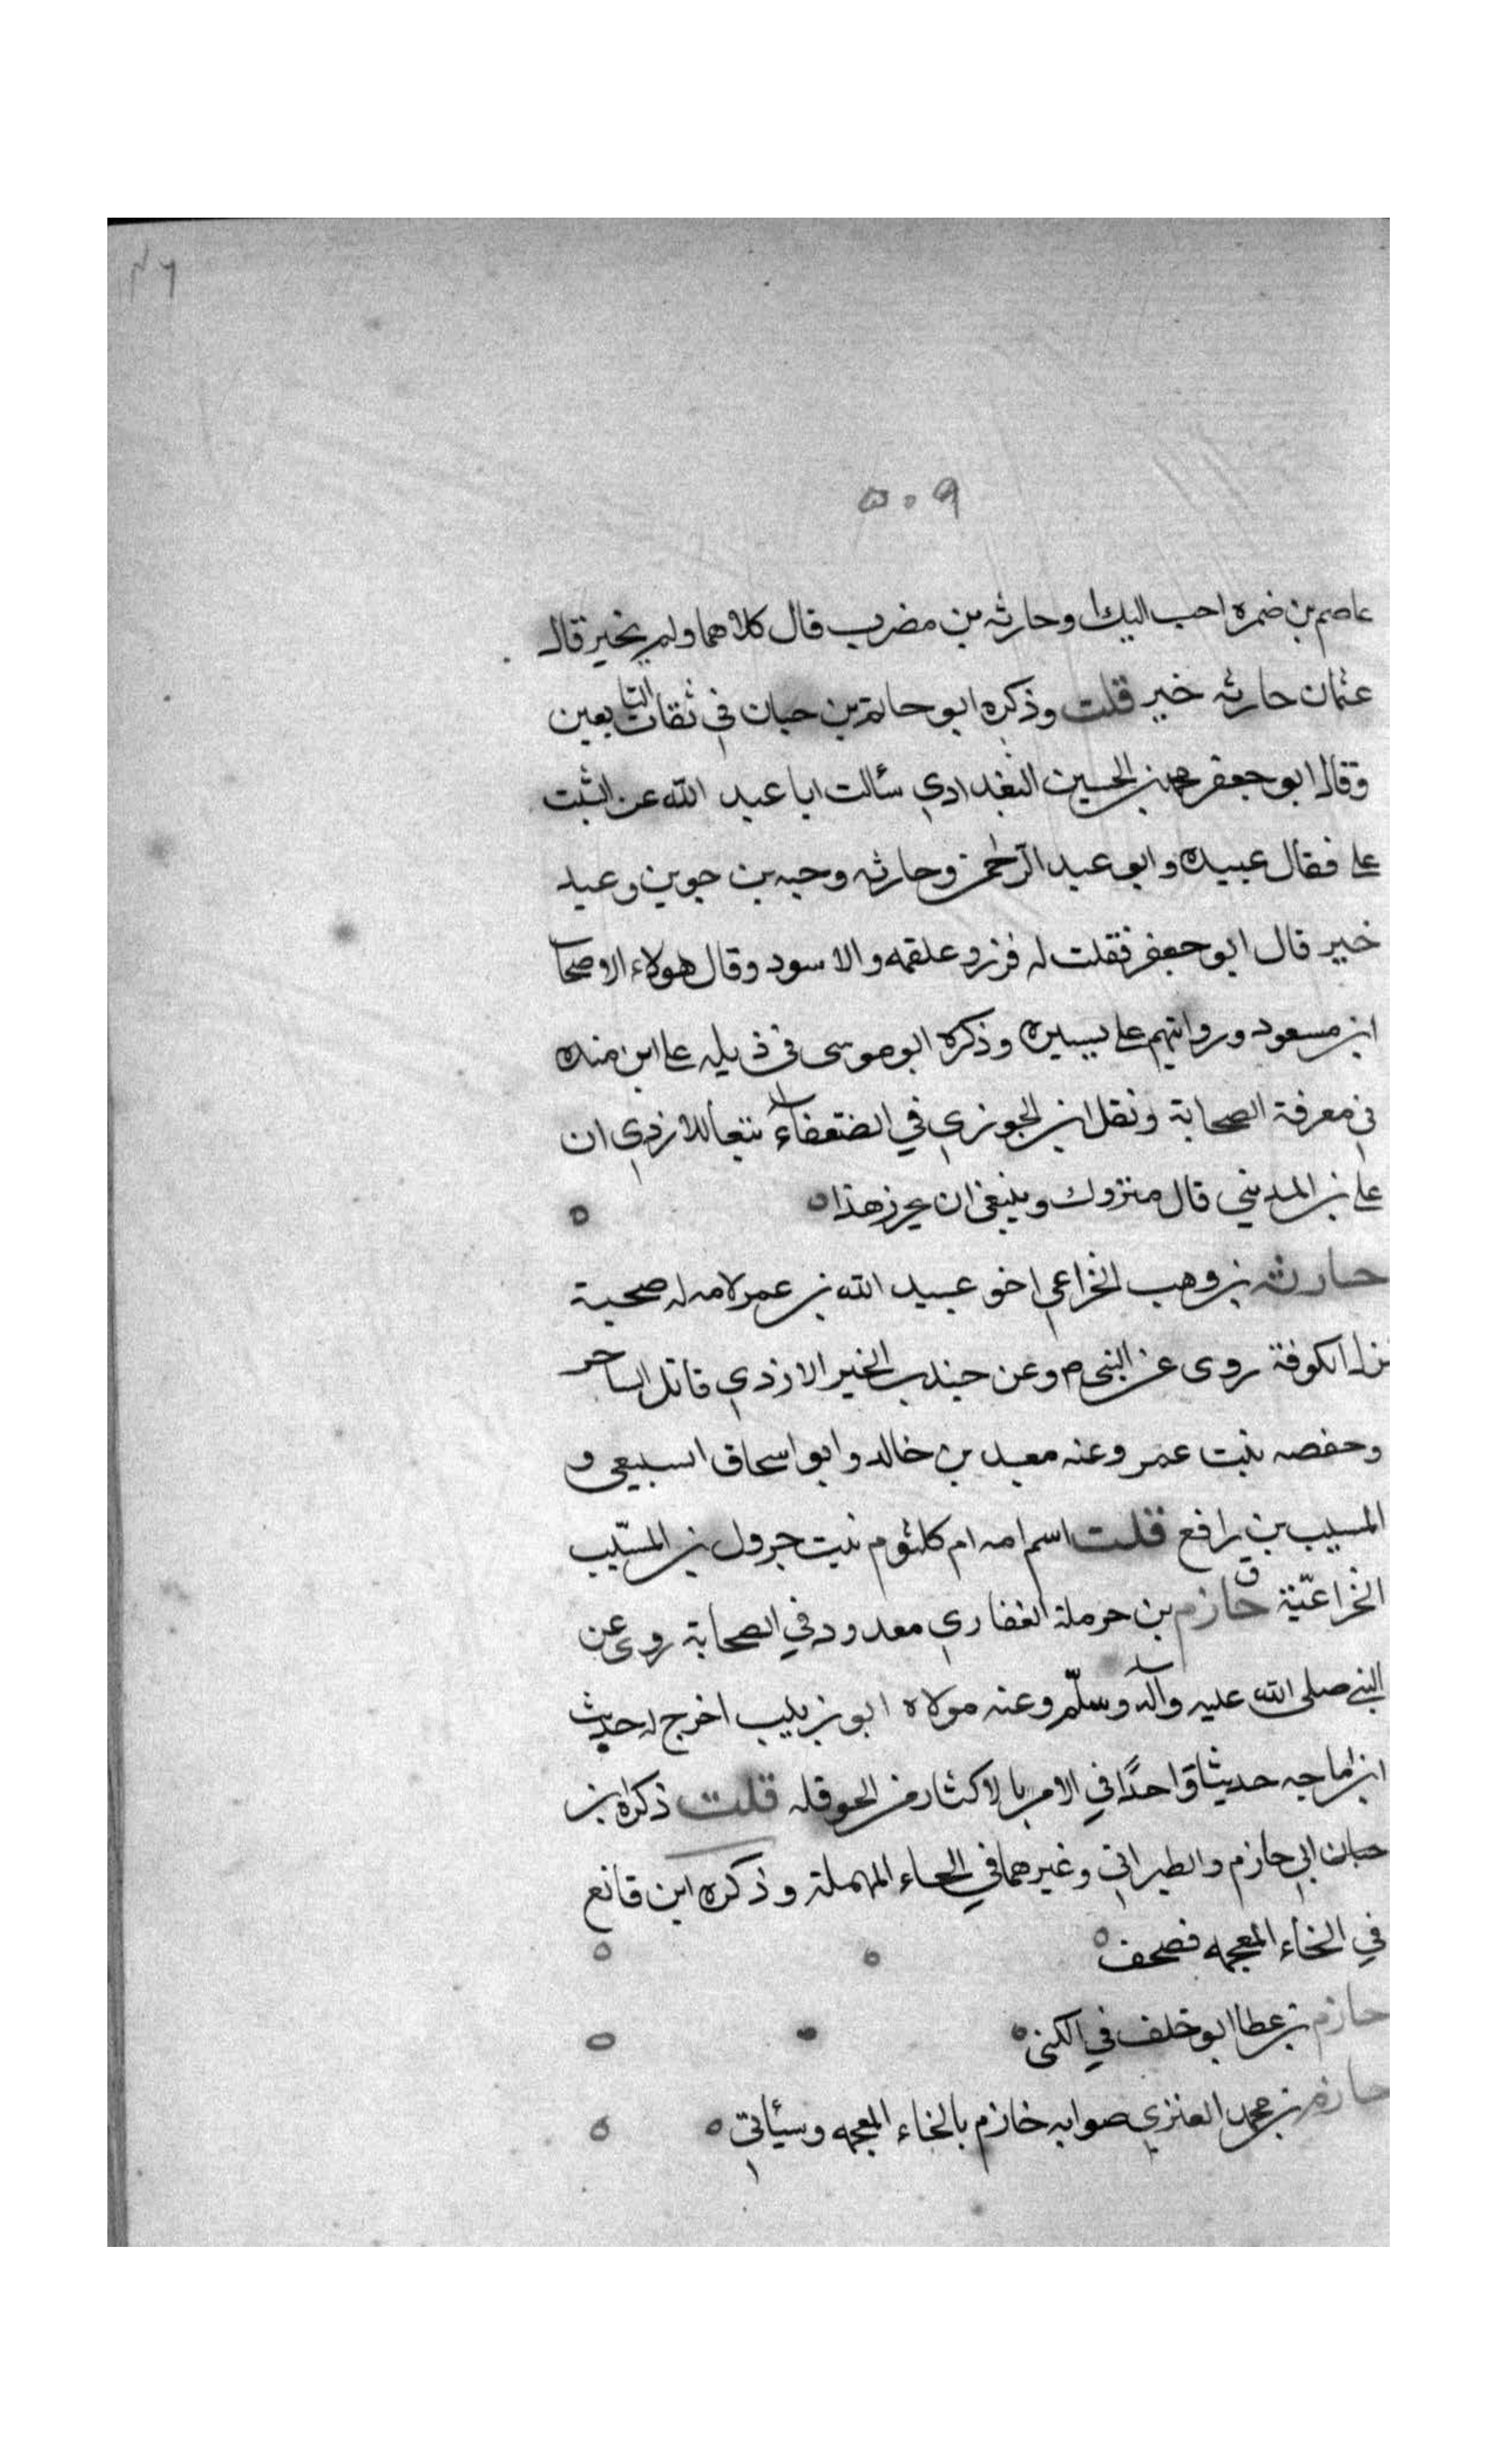 ٥٠٩
عاصم بن ضمره احب اليك او حارثه بن مضرب قال كلاهما ولم يخير قال
عثمان حارثه خير قلت وذكره ابو حاتم بن حبان في ثقات التابعين
وقال ابو جعفر محمد بن الحسين البغدادي سئالت ابا عبد الله عن الثبت
على فقال عبيده وابو عبد الرحمن وحارثه وحبه بن جوين وعبد
خير قال ابو جعفر فقلت له فزر وعلقمه والاسود وقال هولاء الاصحاب
ابن مسعود وروايتهم على يسيره وذكره ابو موسى في ذيله على ابن منده
في معرفة الصحابة ونقل ابن الجوزي في الضعفاء تبعاً للازدي ان
على بن المديني قال متروك وينبغي ان يحرز هذا
حارثه بن وهب الخزاعي اخو عبيد الله بن عمر لامه له صحبة
نزل الكوفة روى عن النبي ص وعن جندب الخير الازدي قاتل الساحر
وحفصه بنت عمر وعنه معبد بن خالد وابو اسحاق السبيعي و
المسيب بن رافع قلت اسم امه ام كلثوم بنت جرول بن المسيّب
الخزاعيّة ق حازم بن حرملة الغفاري معدود في الصحابة روى عن
النبي صلى الله عليه وآله وسلّم وعنه مولاه ابو زينب اخرج له حديث
ابن ماجه حديثا واحدًا في الامر بالاكثار من الحوقله قلت ذكره ابن
حبان ابي حازم والطبراني وغيرهما في الحاء المهملة وذكره ابن قانع
في الخاء المعجمه فصحف
حازم بن عطا ابو خلف في الكنى
حازم بن محمد العنزي صوابه خازم بالخاء المعجمه وسيأتي